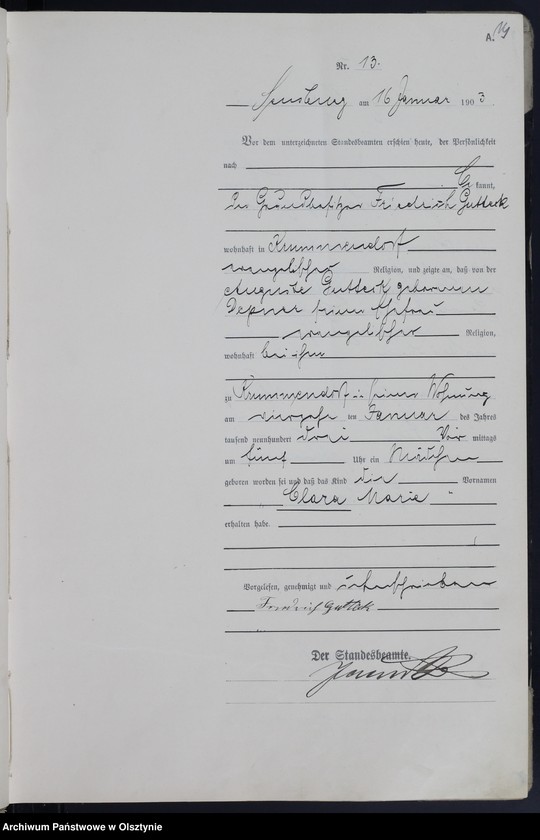 A. 19
Nr. 13.
Sensburg am 16 Januar 1903
Vor dem unterzeichneten Standesbeamten erschien heute, der Persönlichkeit
nach
kannt,
der Grundbesitzer Friedrich Gutteck
wohnhaft in Krummendorf
evangelischer Religion, und zeigte an, daß von der
Auguste Gutteck geborenen
Depner seiner Ehefrau
evangelischer Religion,
wohnhaft bei ihm
zu Krummendorf in seiner Wohnung
am vierzehn ten Januar des Jahres
tausend neunhundert drei Vor mittags
um fünf Uhr ein Mädchen
geboren worden sei und daß das Kind die Vornamen
Clara Marie
erhalten habe.
Vorgelesen, genehmigt und unterschrieben
Friedrich Gutteck
Der Standesbeamte.
Archiwum Państwowe w Olsztynie